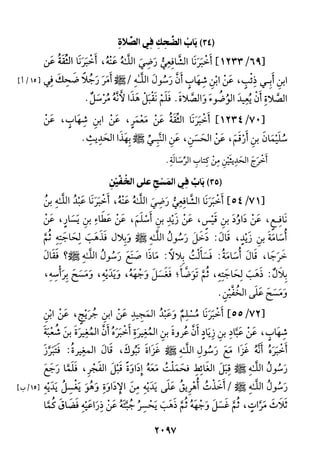 (٣٤) بَابُ الضَّحِكِ فِي الصَّلاةِ
[١٢٣٣/٦٩] أَخْبَرَنَا الشَّافِعِيُّ رَضِيَ اللَّهُ عَنْهُ، أَخْبَرَنَا الثِّقَةُ عَن
ابنِ أَبِي ذِئْبٍ، عَنْ ابْنِ شِهَابٍ أَنَّ رَسُولَ اللَّهِ ﷺ / أَمَرَ رَجُلاً ضَحِكَ فِي [١/١٥]
الصَّلاةِ أَنْ يُعِيدَ الْوُضُوءَ وَالصَّلاةَ. فَلَمْ نَقْبَلْ هَذَا لأَنَّهُ مُرْسَلٌ.
[١٢٣٤/٧٠] أَخْبَرَنَا الثِّقَةُ عَنْ مَعْمَرٍ، عَنْ ابنِ شِهَابٍ، عَنْ
سُلَيْمَانَ بنِ أَرْقَمَ، عَنْ الحَسَنِ، عَنِ النَّبِيِّ ﷺ بِهَذَا الحَدِيثِ.
أَخْرَجَ الْحَدِيثَيْنِ مِنْ كِتَابِ الرِّسَالَةِ.
(٣٥) بَابُ فِي المَسْحِ على الخُفَّيْنِ
[٥٤/٧١] أَخْبَرَنَا الشَّافِعِيُّ رَضِيَ اللَّهُ عَنْهُ، أَخْبَرَنَا عَبْدُ اللَّهِ بنُ
نَافِعٍ، عَنْ دَاوُدَ بنِ قَيْسٍ، عَن زَيْدِ بنِ أَسْلَمَ، عَن عَطَاءِ بنِ يَسَارٍ، عَنْ
أُسَامَةَ بنِ زَيْدٍ، قَالَ: دَخَلَ رَسُولُ اللَّهِ ﷺ وَبِلال، فَذَهَبَ لِحَاجَتِهِ ثُمَّ
خَرَجَا، قَالَ أُسَامَةُ: فَسَأَلْتُ بِلالاً: مَاذَا صَنَعَ رَسُولُ اللَّهِ ﷺ؟ فَقَالَ
بِلالٌ: ذَهَبَ لِحَاجَتِهِ، ثُمَّ تَوَضَّأَ، فَغَسَلَ وَجْهَهُ، وَيَدَيْهِ، وَمَسَحَ بِرَأْسِهِ،
وَمَسَحَ عَلَى الخُفَّيْنِ.
[٥٥/٧٢] أَخْبَرَنَا مُسْلِمٌ وَعَبْدُ المَجِيدِ عَن ابنِ جُرَيْجٍ، عَنْ ابْنِ
شِهَابٍ، عَنْ عَبَّادِ بنِ زِيَادٍ أَنَّ عروةَ بنَ المُغِيرَةِ أَخْبَرَهُ أَنَّ المُغِيرَةَ بنَ شُعْبَةَ
أَخْبَرَهُ أَنَّهُ غَزَا مَعَ رَسُولِ اللَّهِ ﷺ غَزَاةَ تَبُوكَ، قَالَ المغيرةُ: فَتَبَرَّزَ
رَسُولُ اللَّهِ ﷺ قِبَلَ الغَائِطِ فَحَمَلْتُ مَعَهُ إِدَاوَةً قَبْلَ الفَجْرِ، فَلَمَّا رَجَعَ
رَسُولُ اللَّهِ ﷺ / أَخَذْتُ أُهْرِيقُ عَلَى يَدَيْهِ مِنَ الإِدَاوَةِ وَهُوَ يَغْسِلُ يَدَيْهِ [١٥/ب]
ثَلاثَ مَرَّاتٍ، ثُمَّ غَسَلَ وَجْهَهُ ثُمَّ ذَهَبَ يَحْسِرُ جُبَّتَهُ عَنْ ذِرَاعَيْهِ فَضَاقَ كُمَّا
٢٠٩٧